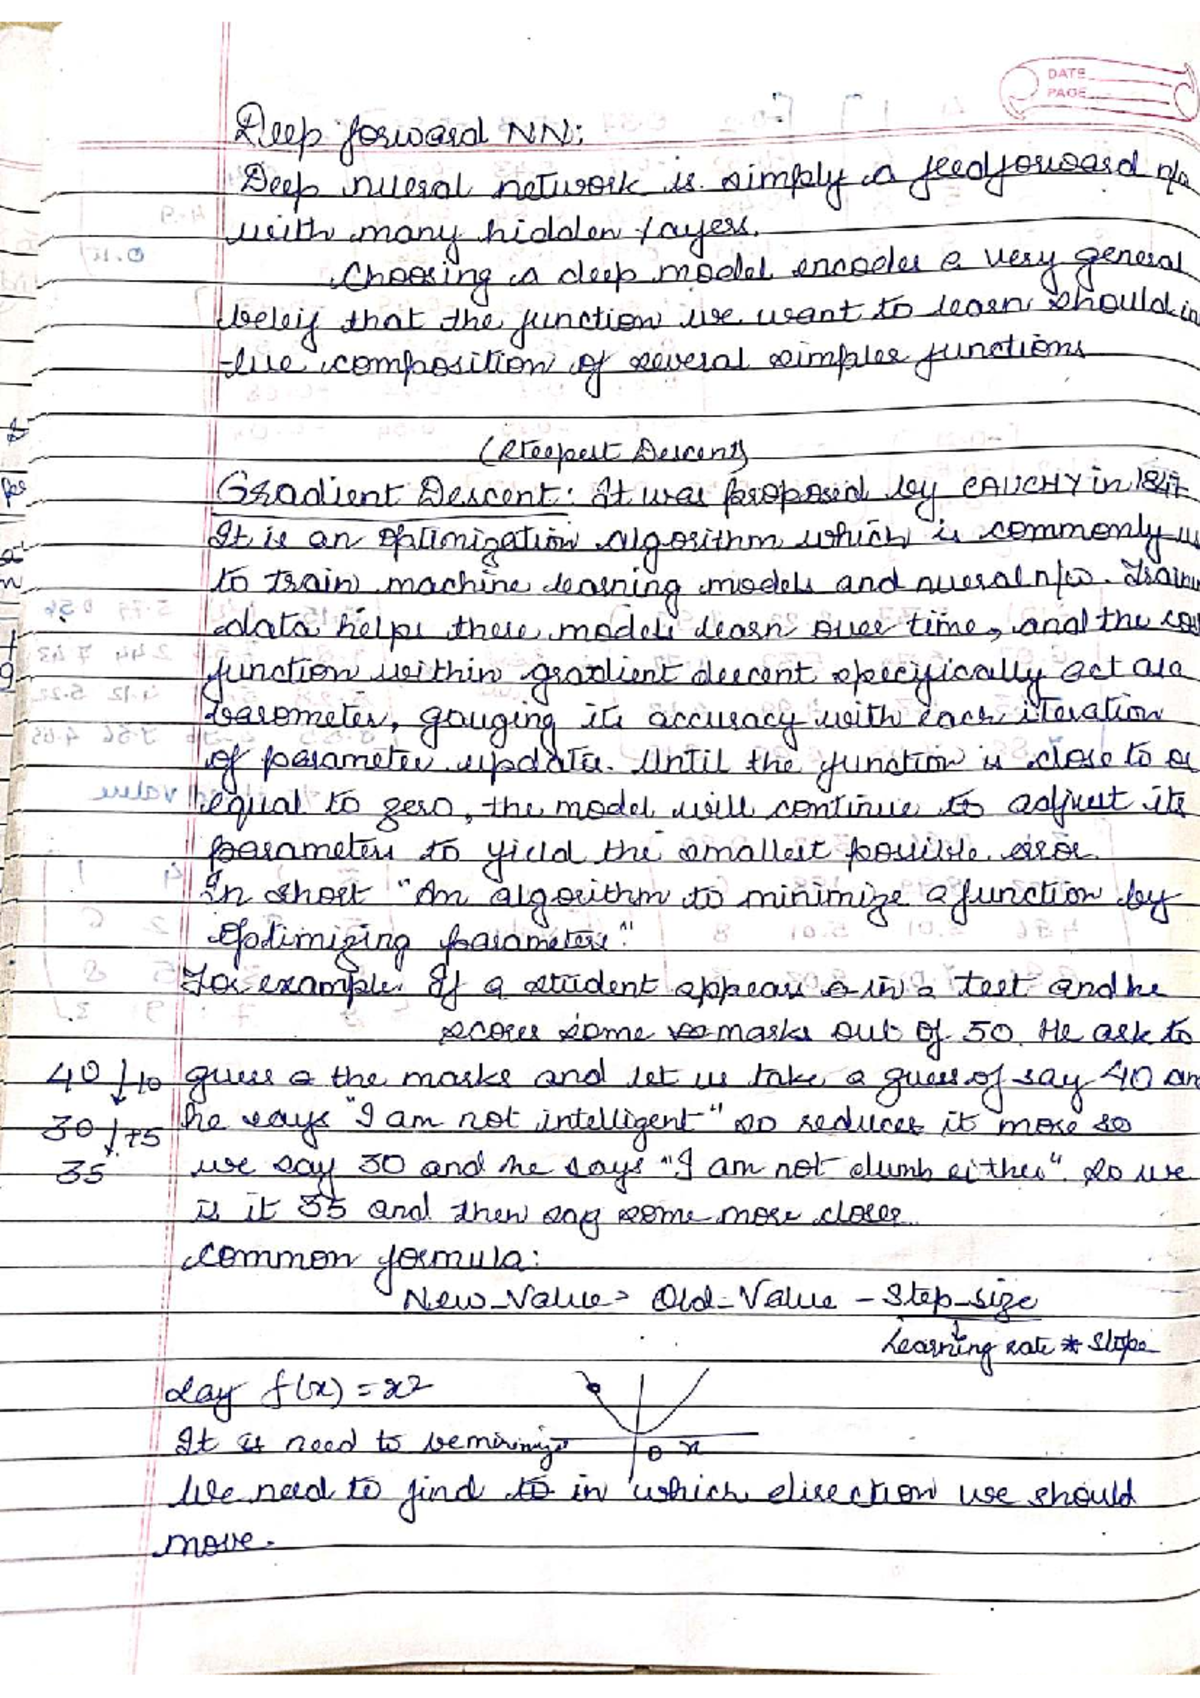 DATE
PAGE
Deep forward NN:
Deep nueral network is simply a feedforward n/w
with many hidden layers.
Choosing a deep model encodes a very general
beleif that the function we want to learn should in
-lve composition of several simpler functions
(Steepest Descent)
Gradient Descent: It was proposed by CAUCHY in 1847
It is an optimization algorithm which is commonly us
to train machine learning models and nueral n/w. Train
data helps these models learn over time, and the cos
function within gradient descent specifically act as a
barometer, gauging its accuracy with each iteration
of parameter update. Until the function is close to or
equal to zero, the model will continue to adjust its
parameters to yield the smallest possible error.
In short "An algorithm to minimize a function by
optimizing parameters."
For example. If a student appears in a test and he
scores some marks out of 50. He ask to
40 ↓-10 guess the marks and let us take a guess of say 40 an
30 ↓+5 he says "I am not intelligent" so reduces it more so
35 we say 30 and he says "I am not dumb either". so we
is it 35 and then say some more closer
common formula:
New_Value = Old_Value - Step_size
Learning rate * Slope
say f(x) = x2
It is need to be minimize
0 x
We need to find in which direction we should
move.